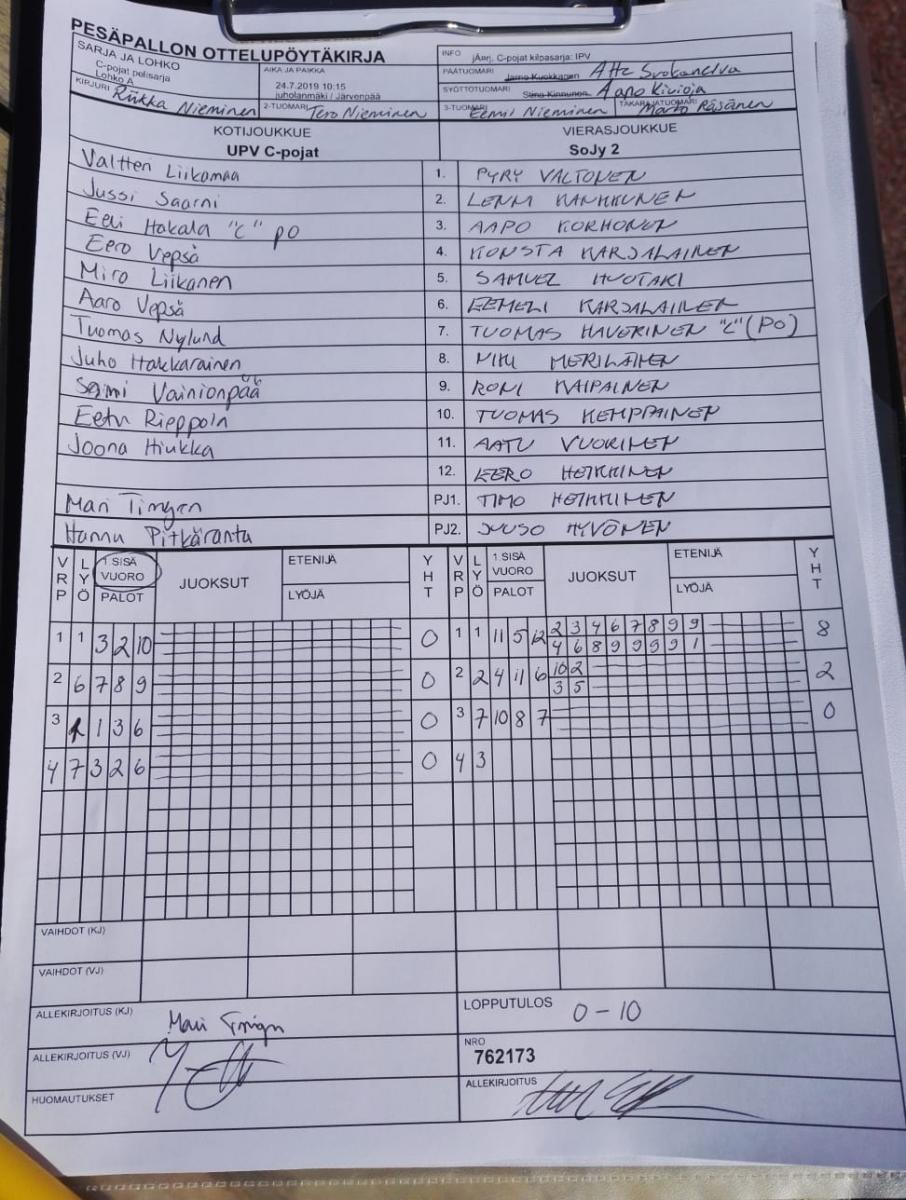 PESÄPALLON OTTELUPÖYTÄKIRJA
SARJA JA LOHKO
C-pojat pelisarja
Lohko A
AIKA JA PAIKKA
24.7.2019 10:15
juholanmäki / Järvenpää
INFO
jÄmj, C-pojat kilpasarja: IPV
PÄÄTUOMARI
SYÖTTÖTUOMARI Aapo Kivioja
KIRJURI Riikka Nieminen
2-TUOMARI Tero Nieminen
3-TUOMARI Eemil Nieminen
TAKARAJATUOMARI Marko Räsänen
KOTIJOUKKUE
UPV C-pojat
VIERASJOUKKUE
SoJy 2
Valtteri Liikamaa 1. PYRY VALTONEN
Jussi Saarni 2. LENNI KANKKUNEN
Eeli Hakala "C" PO 3. AAPO KORHONEN
Eero Vepsä 4. KONSTA KARJALAINEN
Miro Liikanen 5. SAMUEL HUOTARI
Aaro Vepsä 6. EEMELI KARJALAINEN
Tuomas Nylund 7. TUOMAS HAVERINEN "C" (PO)
Juho Hakkarainen 8. NIKI MERILÄINEN
Sami Vainionpää 9. RONI KAIPAINEN
Eetu Rieppola 10. TUOMAS KEMPPAINEN
Joona Hiukka 11. AATU VUORINEN
12. EERO HEIKKINEN
Mari Timgren PJ1. TIMO HEIKKINEN
Hannu Pitkäranta PJ2. JUUSO HYVÖNEN
VRP LYÖ 1.SISÄ VUORO PALOT JUOKSUT ETENIJÄ LYÖJÄ YHT VRP LYÖ 1.SISÄ VUORO PALOT JUOKSUT ETENIJÄ LYÖJÄ YHT
1 1 3 2 10 0 1 1 11 5 12 2 3 4 6 7 8 9 9 8
4 6 8 9 9 9 9 1
2 6 7 8 9 0 2 2 4 11 6 10 2 2
3 5
3 1 1 3 6 0 3 7 10 8 7 0
4 7 3 2 6 0 4 3
VAIHDOT (KJ)
VAIHDOT (VJ)
ALLEKIRJOITUS (KJ)
LOPPUTULOS 0-10
ALLEKIRJOITUS (VJ)
NRO
762173
HUOMAUTUKSET
ALLEKIRJOITUS